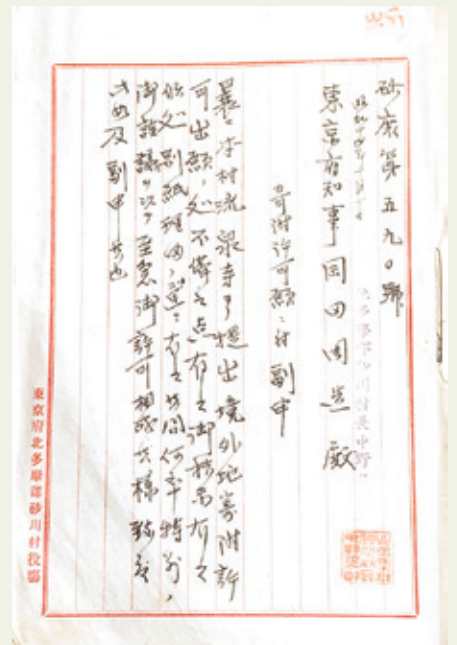 砂庶第五九〇號
東京府知事岡田周造殿
寄附許可願ニ付副申
曩ニ本村流泉寺ヨリ提出境外地寄附許
可出願ノ処不備之点有之御移局有之
候処別紙理由ノ通ニ有之候間何卒特別ノ
御詮議ヲ以テ至急御許可相成候様致度
此如及副申候也
東京府北多摩郡砂川村役場